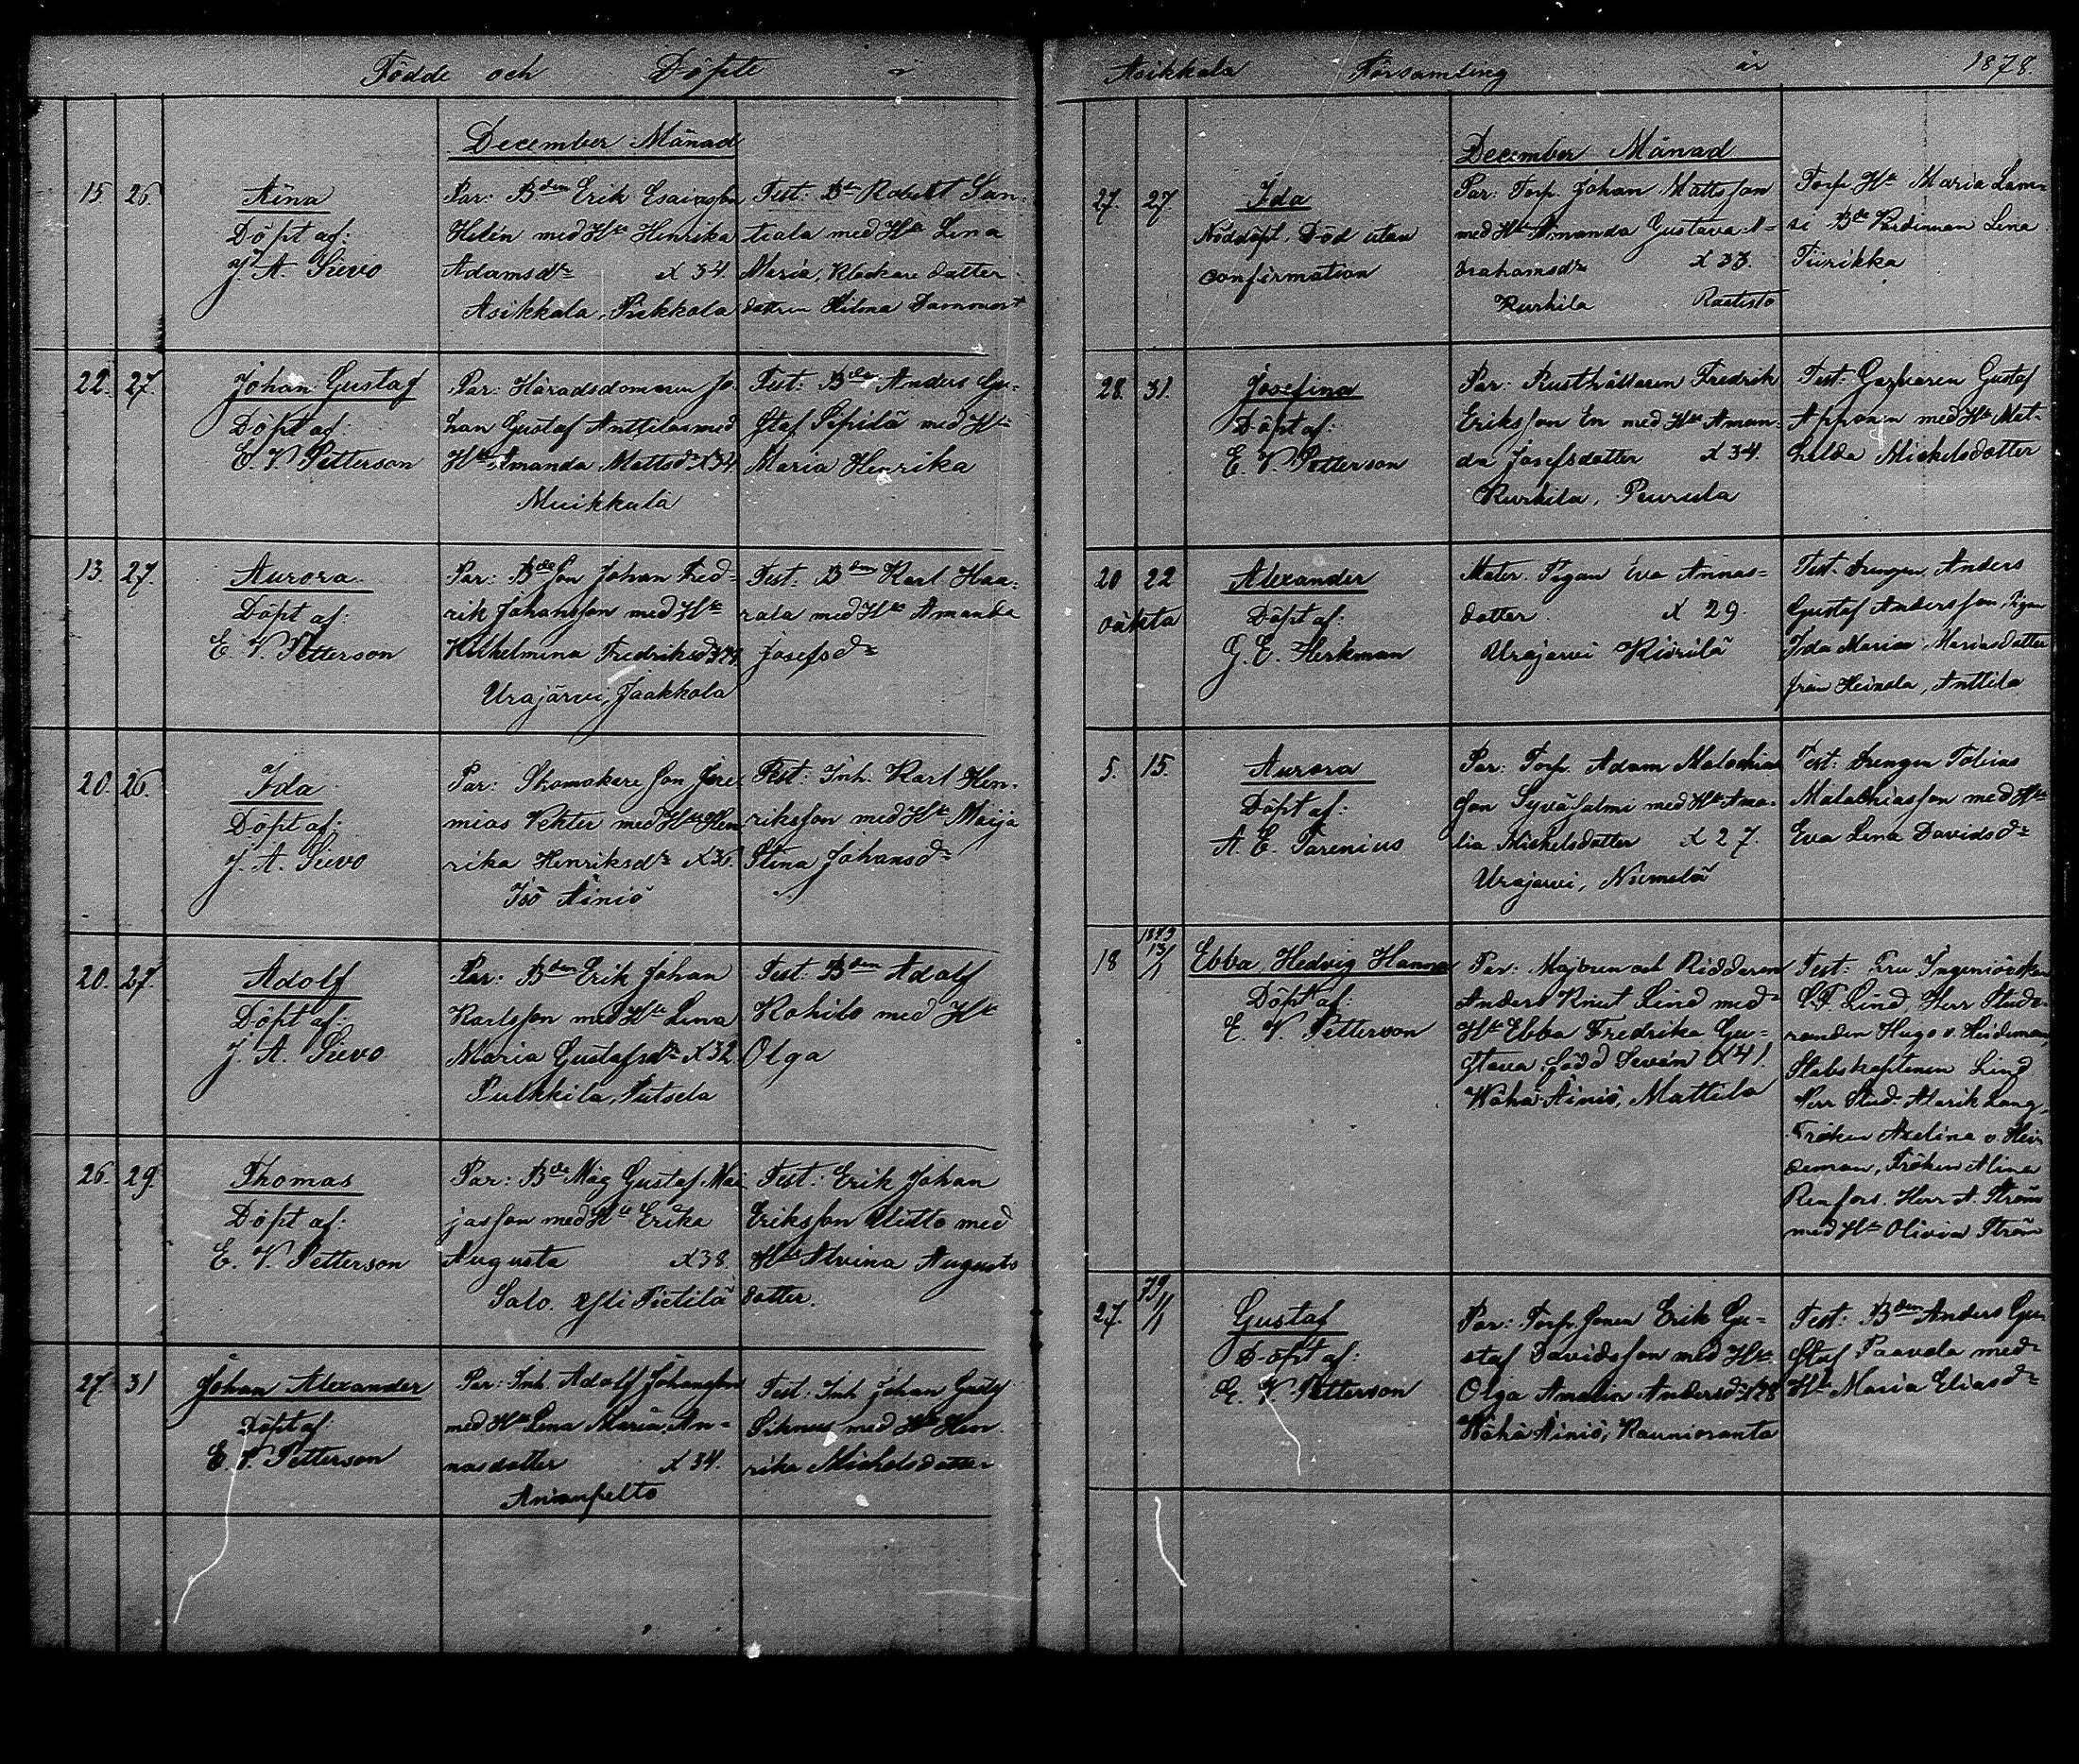 Födde och Döpte i Asikkala Församling år 1878.
December Månad
15. 26. Aina
Döpt af:
J. A. Sievo
Par: Bden Erik Esaiasson
Helén med Hu Henrika
Adamsdr x 34.
Asikkala, Pickkola
Test: Bdn Robert San-
tala med Hu Lena
Maria, Klockare datter
dattren Hilma Dammert
22. 27. Johan Gustaf
Döpt af:
E. V. Petterson
Par: Häradsdomaren Jo-
han Gustaf Anttila med
Hu Amanda Mattsdr x 34
Muikkala
Test: Bden Anders Gu-
staf Sipilä med Hu
Maria Henrika
13. 27. Aurora
Döpt af:
E. V. Petterson
Par: Bdeson Johan Fred-
rik Johansson med Hu
Wilhelmina Fredriksd x 24
Urajärvi, Jaakkola
Test: Bden Karl Haa-
rala med Hu Amanda
Josefsdr
20. 26. Ida
Döpt af:
J. A. Sievo
Par: Skomakare son Jere-
mias Vekter med Hu Hen
rika Henriksdr x 36.
Iso Äiniö
Test: Inh. Karl Hen-
riksson med Hu Maija
Stina Johansdr
20. 27. Adolf
Döpt af:
J. A. Sievo
Par: Bden Erik Johan
Karlsson med Hu Lena
Maria Gustafsdr x 32
Pulkkila, Putsela
Test: Bden Adolf
Kohilo med Hu
Olga
26. 29 Thomas
Döpt af:
E. V. Petterson
Par: Bde Måg Gustaf Mai
jasson med Hu Erika
Augusta x 38.
Salo. Yli Pietilä
Test: Erik Johan
Eriksson Utitto med
Hu Alvina Augusts
datter.
27. 31 Johan Alexander
Döpt af
E. V. Petterson
Par: Inh. Adolf Johansson
med Hu Lena Maria An-
nasdatter x 34.
Anianpelto
Test: Inh Johan Gustaf
Sihnus med Hu Hen
rika Mickelsdatter
December Månad
27. 27. Ida
Nöddöpt, Död utan
confirmation
Par: Torp. Johan Mattsson
med Hu Amanda Gustava A-
brahamsdr x 33.
Kurhila Raatisto
Torp Hu Maria Lam-
si Bde Värdinnan Lena
Tiirikka
28. 31. Josefina
Döpt af:
E. V. Petterson
Par: Rusthållaren Fredrik
Eriksson En med Hu Aman-
da Josefsdatter x 34.
Kurhila, Peurula
Test: Garfvaren Gustaf
Apponen med Hu Mat-
hilda Mickelsdotter
20 22 Alexander
oäkta Döpt af:
G. E. Herkman
Mater: Pigan Eva Annas-
dotter x 29.
Urajarvi Kiirilä
Test. Drengen Anders
Gustaf Andersson, Pigan
Ida Maria Mariasdatter
från Heinola, Anttila
5. 15. Aurora
Döpt af:
A. E. Farenius
Par: Torp. Adam Malachias
son Syväsalmi med Hu Ama-
lia Mickelsdatter x 27.
Urajarvi, Niemelä
Test: Drengen Tobias
Malachiasson med Hu
Eva Lena Davidsdr
18 1879 13/1 Ebba Hedvig Hanna
Döpt af:
E. V. Petterson
Par: Majoren och Riddaren
Anders Knut Lind med
Hu Ebba Fredrika Gu-
stava född Sevón (x 41
Wähä Äiniö, Mattila
Test: Fru Ingeniörskan
C. F. Lind, Herr Stude-
randen Hugo v. Heideman,
Stabskaptenen Lind
Herr Stud. Alarik Lang,
Fröken Axelina v. Hei-
deman, Fröken Alina
Renfors. Herr A. Ström
med Hu Olivia Ström
27. 79 1/1 Gustaf
Döpt af:
E. V. Petterson
Par: Torp. sonen Erik Gu-
staf Davidsson med Hu
Olga Amalia Andersdr x 28
Wähä Äiniö, Raunioranta
Test: Bden Anders Gu-
staf Paavola med
Hu Maria Eliasdr